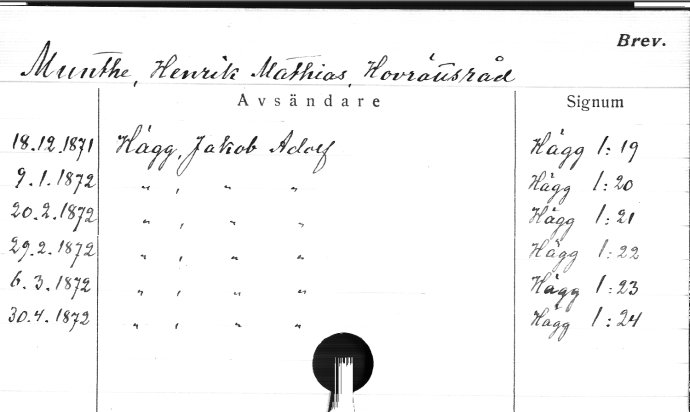 Brev.
Munthe, Henrik Mathias, Hovrättsråd
Avsändare Signum
18.12.1871 Hägg, Jakob Adolf Hägg 1:19
9.1.1872 " , " " Hägg 1:20
20.2.1872 " , " " Hägg 1:21
29.2.1872 " , " " Hägg 1:22
6.3.1872 " , " " Hägg 1:23
30.4.1872 " , " " Hägg 1:24